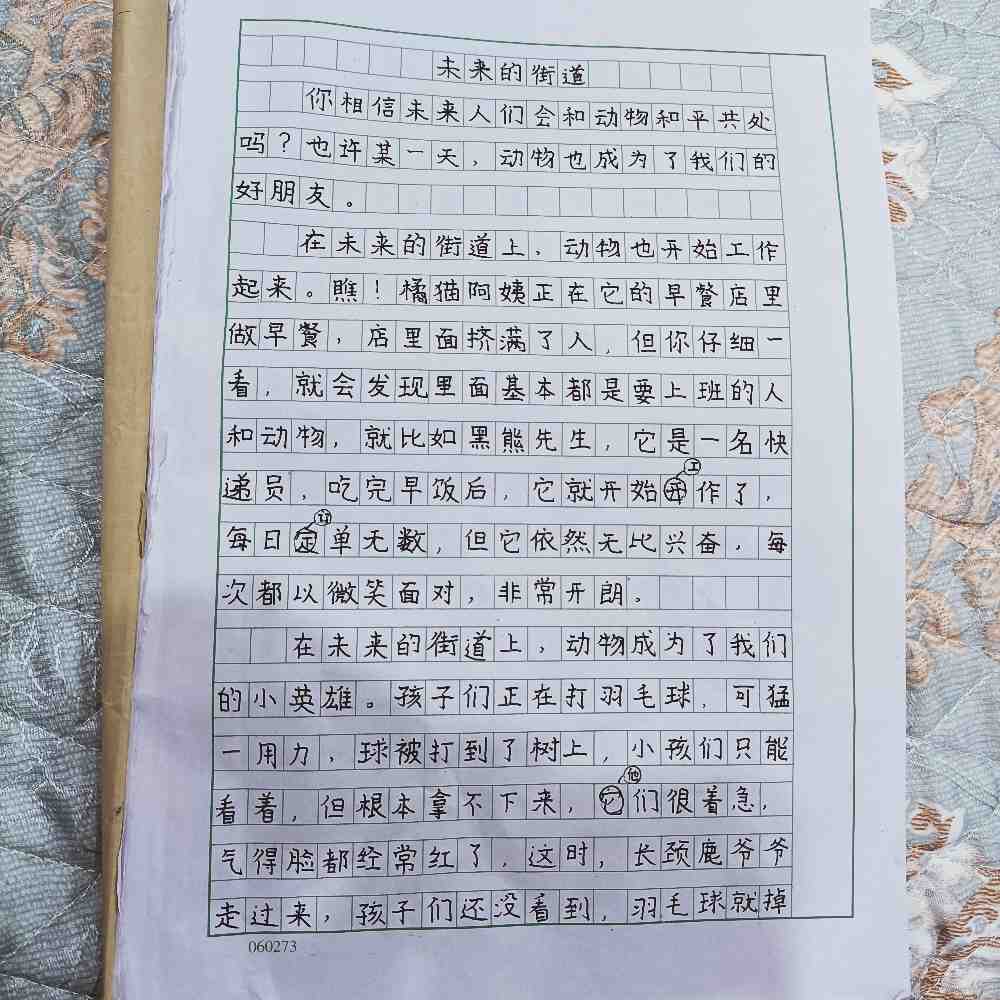 未来的街道
你相信未来人们会和动物和平共处
吗？也许某一天，动物也成为了我们的
好朋友。
在未来的街道上，动物也开始工作
起来。瞧！橘猫阿姨正在它的早餐店里
做早餐，店里面挤满了人，但你仔细一
看，就会发现里面基本都是要上班的人
和动物，就比如黑熊先生，它是一名快
递员，吃完早饭后，它就开始工作了，
每日订单无数，但它依然无比兴奋，每
次都以微笑面对，非常开朗。
在未来的街道上，动物成为了我们
的小英雄。孩子们正在打羽毛球，可猛
一用力，球被打到了树上，小孩们只能
看着，但根本拿不下来，他们很着急，
气得脸都经常红了，这时，长颈鹿爷爷
走过来，孩子们还没看到，羽毛球就掉
060273